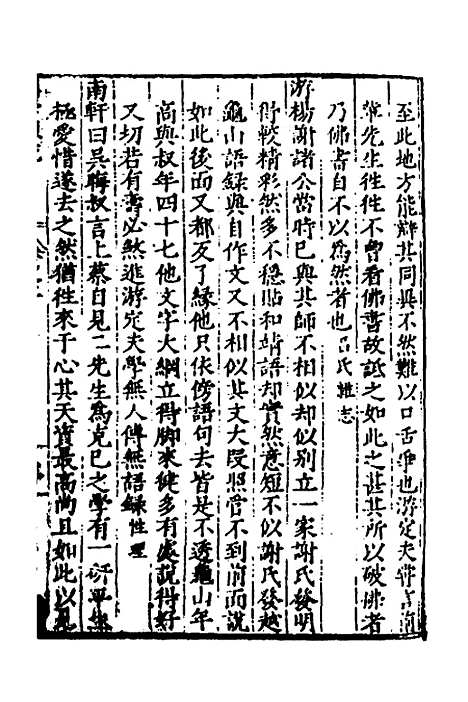 至此地方能辯其同異不然難以口舌爭也游定夫嘗言前
輩先生徃徃不曾看佛書故詆之如此之甚其所以破佛者
乃佛書自不以為然者也呂氏雜志
游楊謝諸公當時已與其師不相似却似別立一家謝氏發明
得較精彩然多不穩貼和靖語却實然意短不似謝氏發越
龜山語錄與自作文又不相似其文大段照管不到前面說
如此後面又都反了緣他只依傍語句去皆是不透龜山年
高與叔年四十七他文字大綱立得脚來健多有處說得好
又切若有壽必煞進游定夫學無人傳無語錄性理
南軒曰吳晦叔言上蔡自見二先生為克己之學有一研平生
極愛惜遂去之然猶徃來于心其天資最高尚且如此以是